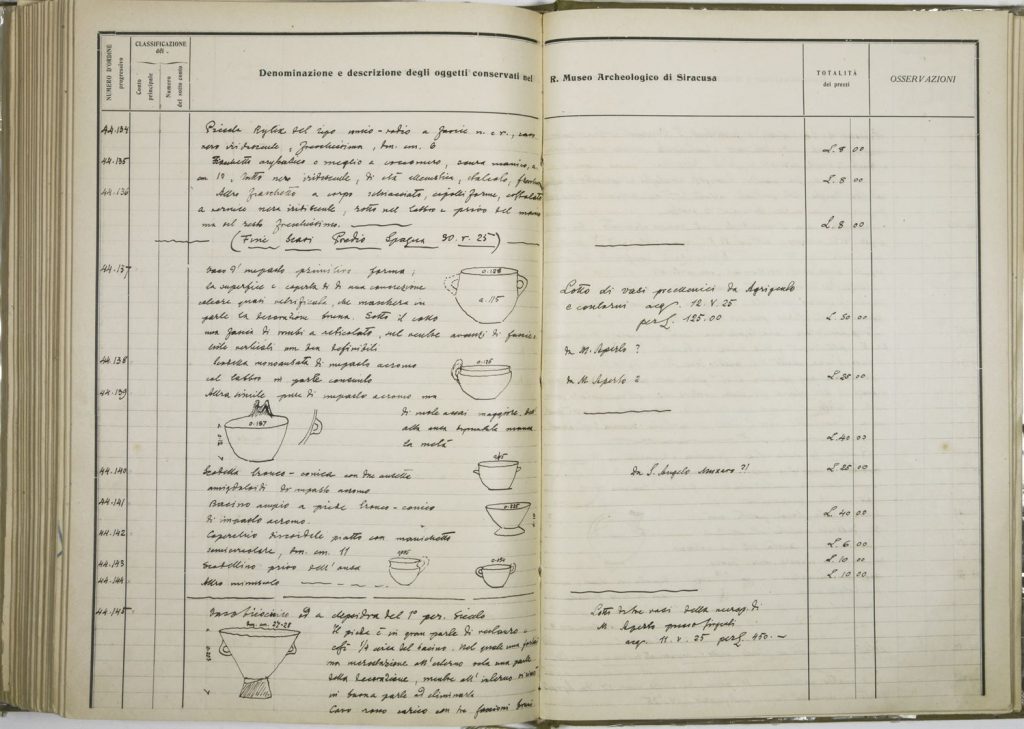 NUMERO D'ORDINE progressivo
CLASSIFICAZIONE
del
Conto principale
Numero del sotto conto
Denominazione e descrizione degli oggetti conservati nel R. Museo Archeologico di Siracusa
TOTALITÀ
dei prezzi
OSSERVAZIONI
44.134 Piccola Kylix del tipo a fascie n. e r.,
nero iridescente, freschissima, dm. cm. 6 L. 8 00
44.135 o meglio a senza manico,
cm 10, tutto nero iridescente, di età L. 8 00
44.136 Altro fraschetto a corpo schiacciato,
a vernice nera iridescente, rotto nel labbro e privo del
ma nel resto freschissimo. L. 8 00
(Fine Scavi Predio Spagna 30. V. 25)
44.137 Vaso d'impasto primitivo forma;
la superficie è coperta di una concrezione
calcare quasi vetrificata, che maschera in
parte la decorazione bruna. Sotto il collo
una fascia di rombi a reticolato, nel ventre avanzi di
verticali non ben definibili.
0.128
0.115
Lotto di vasi preellenici da Agrigento
e contorni acq. 12. V. 25
per L. 125.00
L. 50 00
44.138 Scodella monoansata di impasto acromo
col labbro in parte consunto
da M. Aperto ?
L. 25 00
44.139 Altra simile pure di impasto acromo ma
di mole assai maggiore.
alla ansa manca
la metà
0.187
da M. Aperto ?
L. 40 00
44.140 Scodella tronco-conica con due ansette
amigdaloidi di impasto acromo
da S. Angelo Muxaro ?!
L. 25 00
44.141 Bacino ampio a piede tronco-conico
di impasto acromo.
L. 40 00
44.142 Coperchio discoidale piatto con manichetto
semicircolare, dm. cm. 11
L. 6 00
44.143 Scodellino privo dell'ansa
L. 10 00
44.144 Altro minuscolo
L. 10 00
44.145 ad a clepsidra del 1° per. Siculo
dm. cm. 27-28
Il piede è in gran parte di restauro e
così 1/4 circa del bacino. Nel quale una
ma incrostazione all'esterno vela una parte
della decorazione, mentre all'interno si
in buona parte ad eliminarla
rosso carico con tre fascioni bruni
Lotto di tre vasi della necrop. di
M. Aperto presso Girgenti
acq. 11. V. 25 per L. 450. —